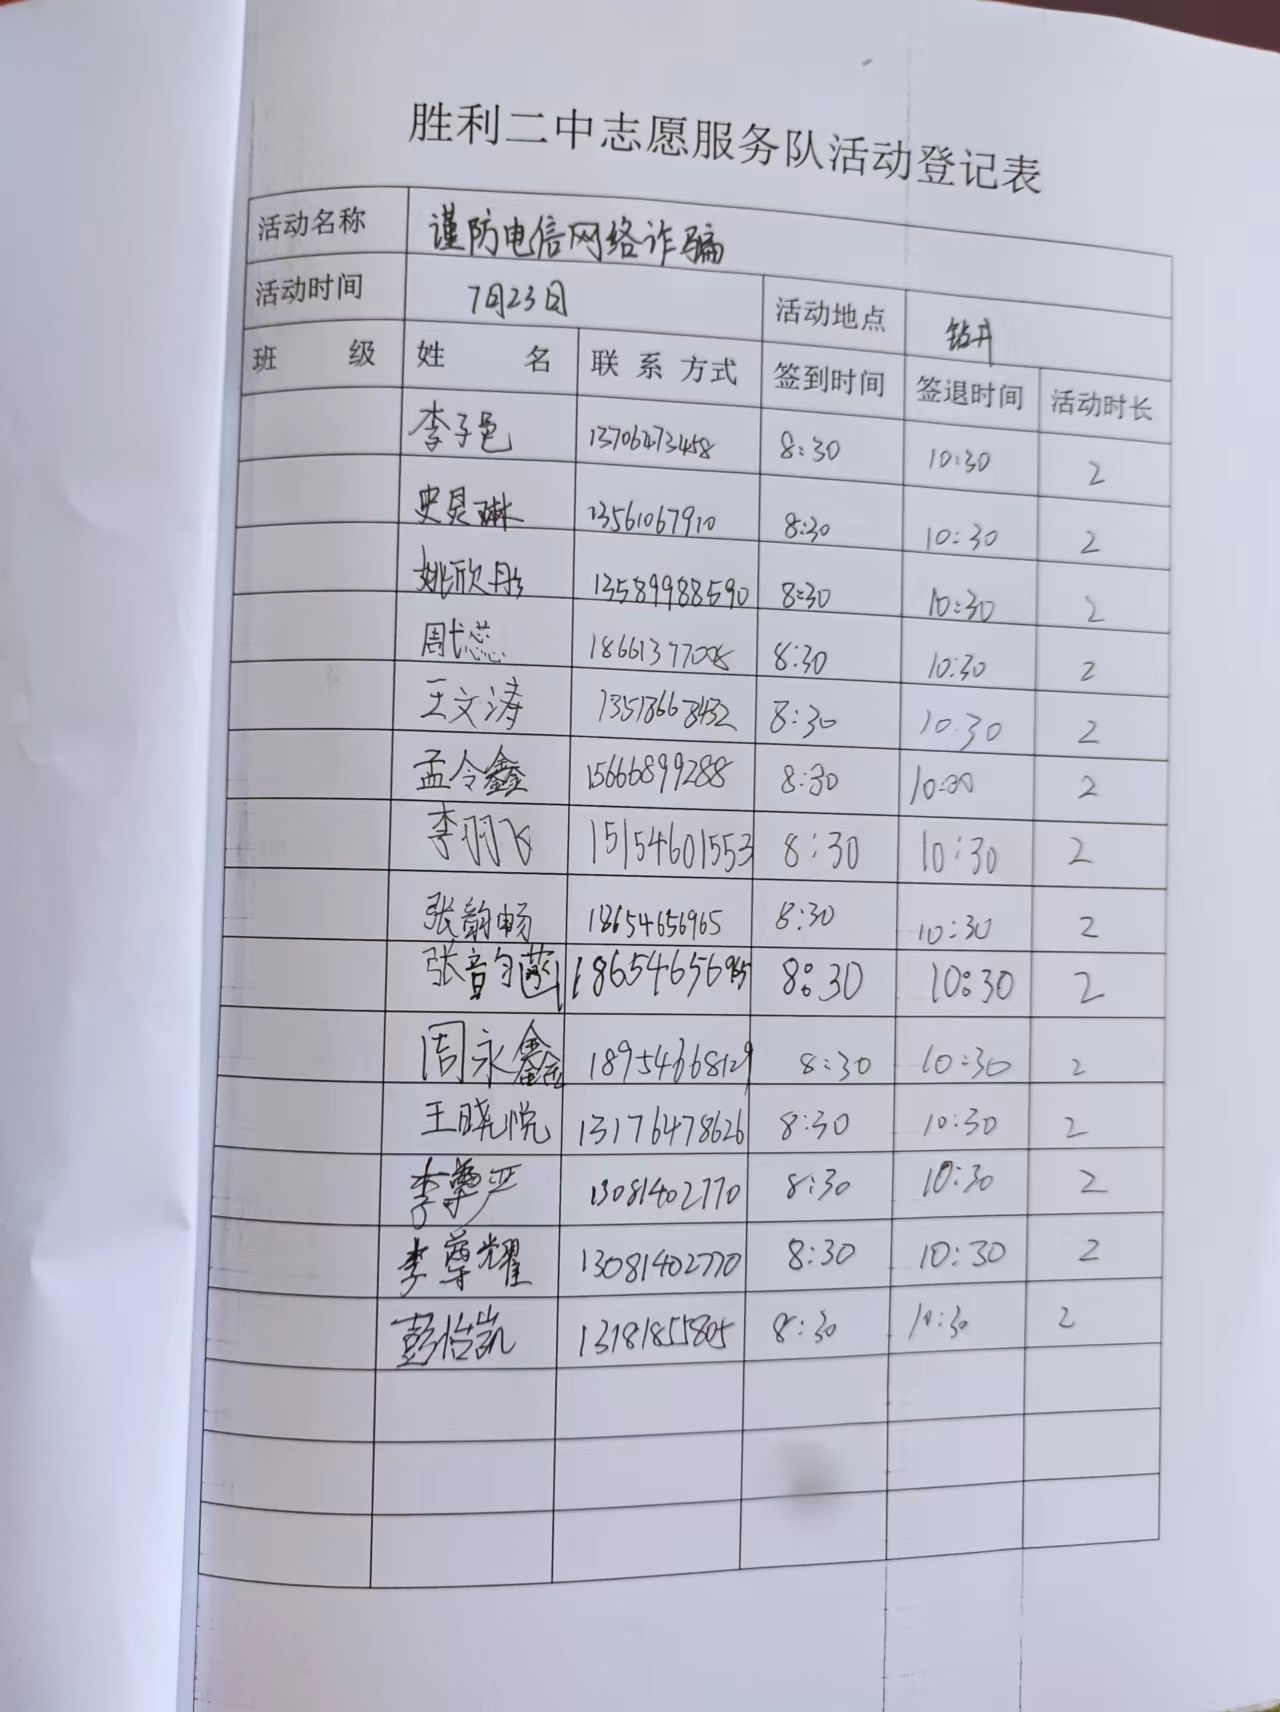 胜利二中志愿服务队活动登记表
活动名称 谨防电信网络诈骗
活动时间 7月23日 活动地点 钻井
班 级 姓 名 联 系 方式 签到时间 签退时间 活动时长
李子邑 13706473458 8:30 10:30 2
史炅琳 13561067910 8:30 10:30 2
姚欣彤 13589988590 8:30 10:30 2
周弋蕊 18661377008 8:30 10:30 2
王文涛 13518668432 8:30 10:30 2
孟令鑫 15666899288 8:30 10:30 2
李羽飞 15154601553 8:30 10:30 2
张韵畅 18654656965 8:30 10:30 2
张韵菡 18654656965 8:30 10:30 2
周永鑫 18954668129 8:30 10:30 2
王晓悦 13176478626 8:30 10:30 2
李尊严 13081402770 8:30 10:30 2
李尊耀 13081402770 8:30 10:30 2
彭怡凯 13181855805 8:30 10:30 2